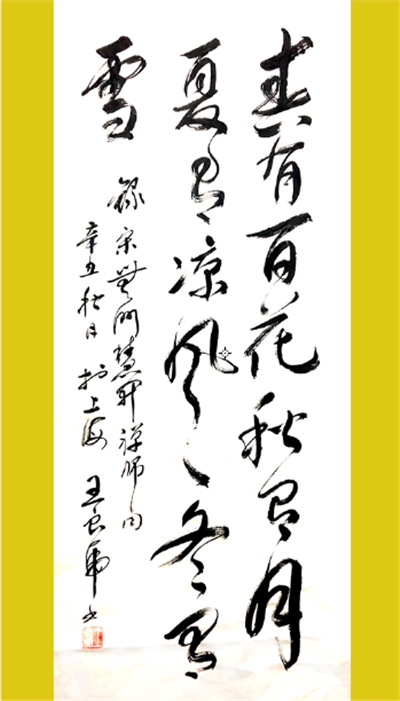 春有百花秋有月
夏有凉风冬有
雪
録宋無門慧開禅師句
辛丑秋日於上海王良